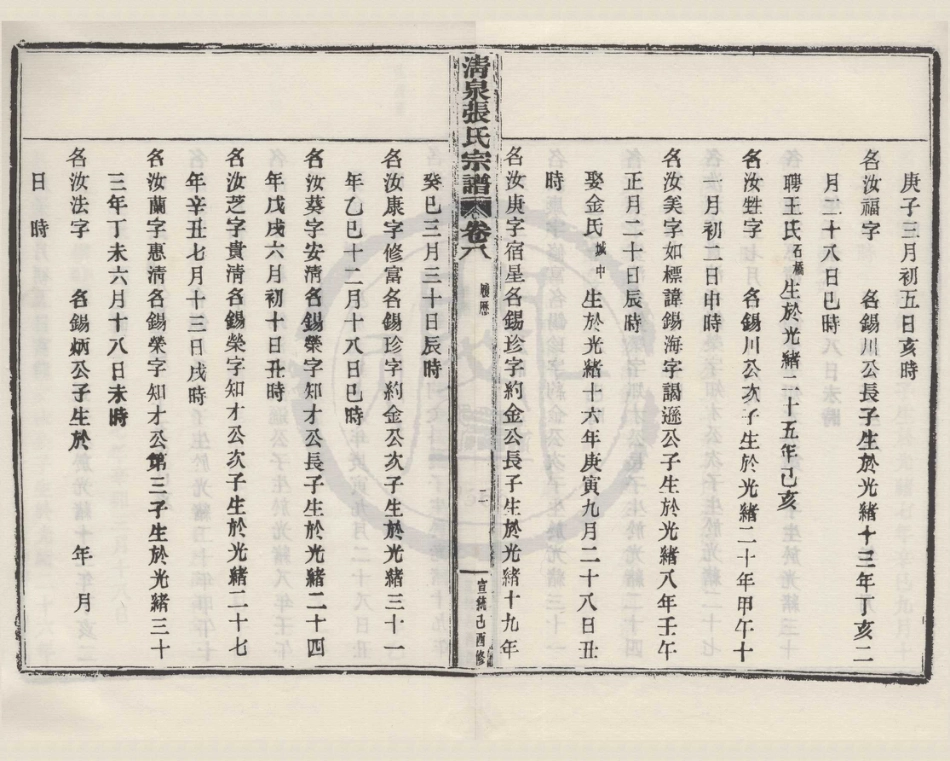 庚子三月初五日亥時
名汝福字　名錫川公長子生於光緒十三年丁亥二
月二十八日巳時
聘王氏石橋生於光緒二十五年己亥
名汝甡字　名錫川公次子生於光緒二十年甲午十
二月初二日申時
名汝美字如標諱錫海字謁遜公子生於光緒八年壬午
正月二十日辰時
娶金氏城中生於光緒十六年庚寅九月二十八日丑
時
名汝庚字宿星名錫珍字約金公長子生於光緒十九年
清泉張氏宗譜
卷八
履歷
二
宣統己酉修
癸巳三月三十日辰時
名汝康字修富名錫珍字約金公次子生於光緒三十一
年乙巳十二月十八日巳時
名汝葵字安清名錫榮字知才公長子生於光緒二十四
年戊戌六月初十日丑時
名汝芝字貴清名錫榮字知才公次子生於光緒二十七
年辛丑七月十三日戌時
名汝蘭字惠清名錫榮字知才公第三子生於光緒三十
三年丁未六月十八日未時
名汝法字　名錫炳公子生於　年　月
日　時